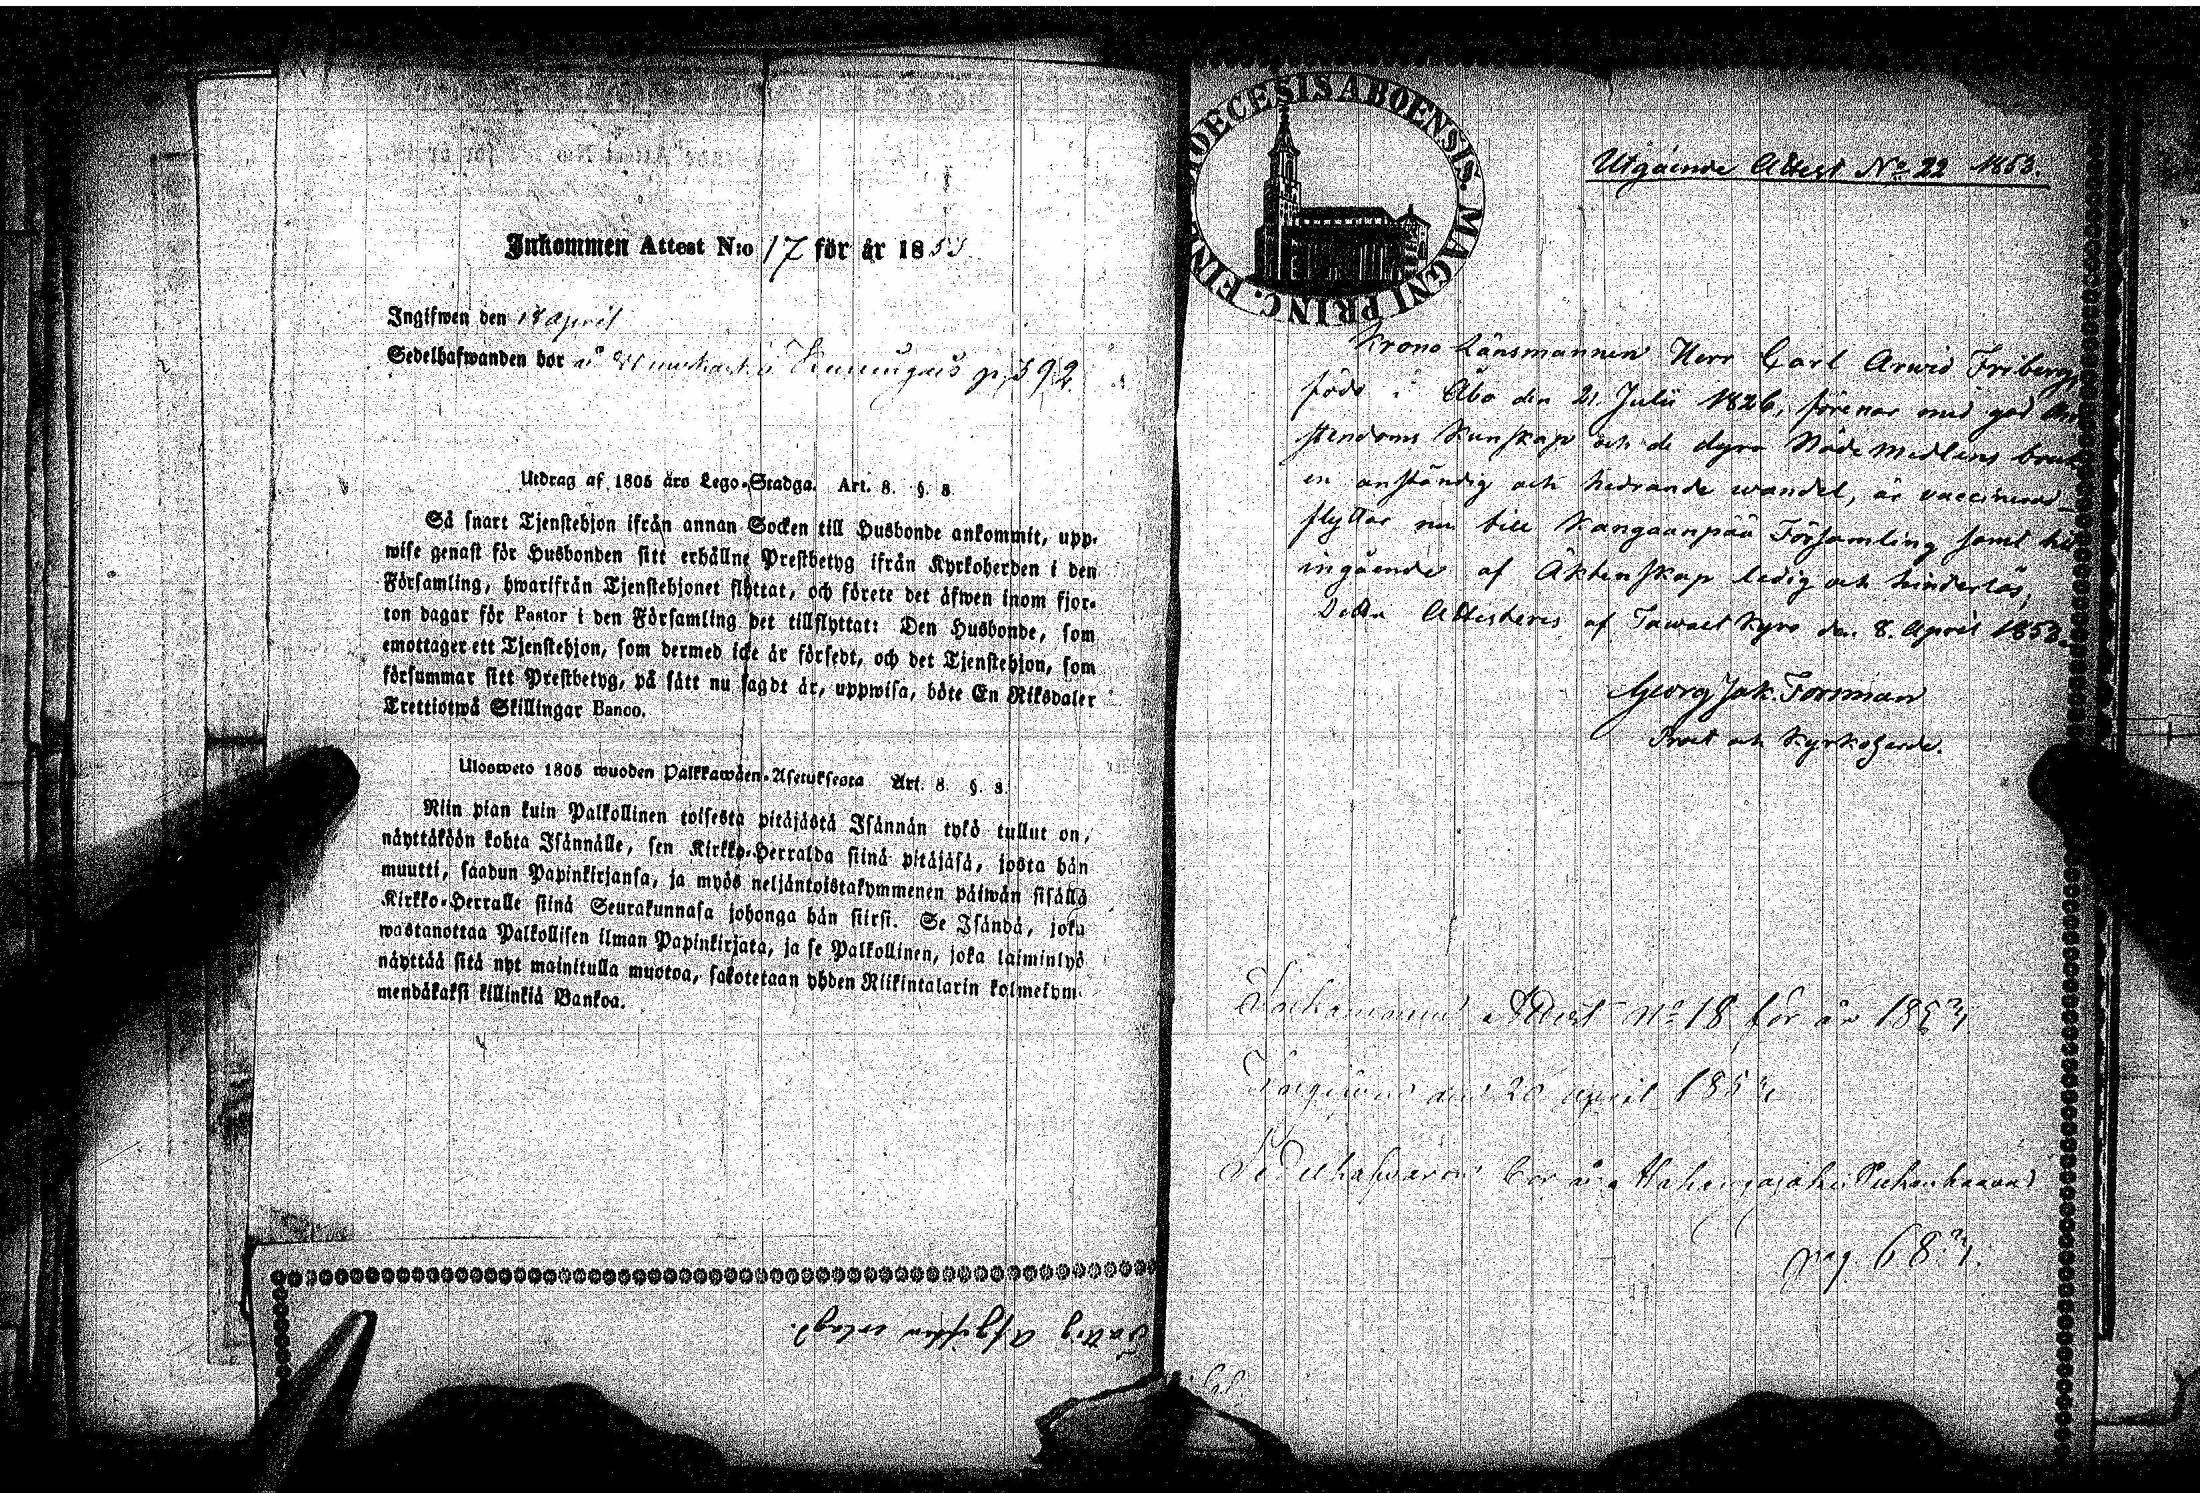 Inkommen Attest N:o 17 för år 1853
Ingifwen den 18 april
Sedelhafwanden bor å p. 392.
Utdrag af 1805 års Lego-Stadga. Art. 8. §. 3.
Så snart Tjenstehjon ifrån annan Socken till Husbonde ankommit, upp-
wise genast för Husbonden sitt erhållne Prestbetyg ifrån Kyrkoherden i den
Församling, hwarifrån Tjenstehjonet flyttat, och förete det äfwen inom fjor-
ton dagar för Pastor i den Församling det tillflyttat: Den Husbonde, som
emottager ett Tjenstehjon, som dermed icke är försedt, och det Tjenstehjon, som
försummar sitt Prestbetyg, på sätt nu sagdt är, uppwisa, böte En Riksdaler
Trettiotwå Skillingar Banco.
Ulosweto 1805 wuoden Palkkawäen-Asetuksesta Art. 8. §. 3.
Niin pian kuin Palkollinen toisesta pitäjästä Isännän tykö tullut on,
näyttäköön kohta Isännälle, sen Kirkko-Herralda siinä pitäjäsä, josta hän
muutti, saadun Papinkirjansa, ja myös neljäntoistakymmenen päiwän sisällä
Kirkko-Herralle siinä Seurakunnasa johonga hän siirsi. Se Isändä, joka
wastanottaa Palkollisen ilman Papinkirjata, ja se Palkollinen, joka laiminlyö
näyttää sitä nyt mainitulla muotoa, sakotetaan yhden Riikintalarin kolmekym-
mendäkaksi killinkiä Bankoa.
Fattig Afgiften erlagd.
DIOECESIS ABOENSIS. MAGNI PRINC. FINL.
Utgående Attest No 22 1853.
Krono Länsmannen Herr Carl Arwid Friberg,
född i Åbo den 21 Julii 1826, förenar med god Kri
stendoms Kunskap och de dyra Nåde medlens bruk
en anständig och hedrande wandel, är vaccinerad
flyttar nu till Kangaanpää Församling samt till
ingående af Äktenskap ledig och hinderlös,
Detta Attesteres af Tawast Kyro den 8. April 1853.
Georg Jak. Forsman
Prost och Kyrkoherde.
Inkommen Attest No 18 för år 1853
Ingifwen den 20 april 1853
Sedelhafwaren bor å
pag 683.